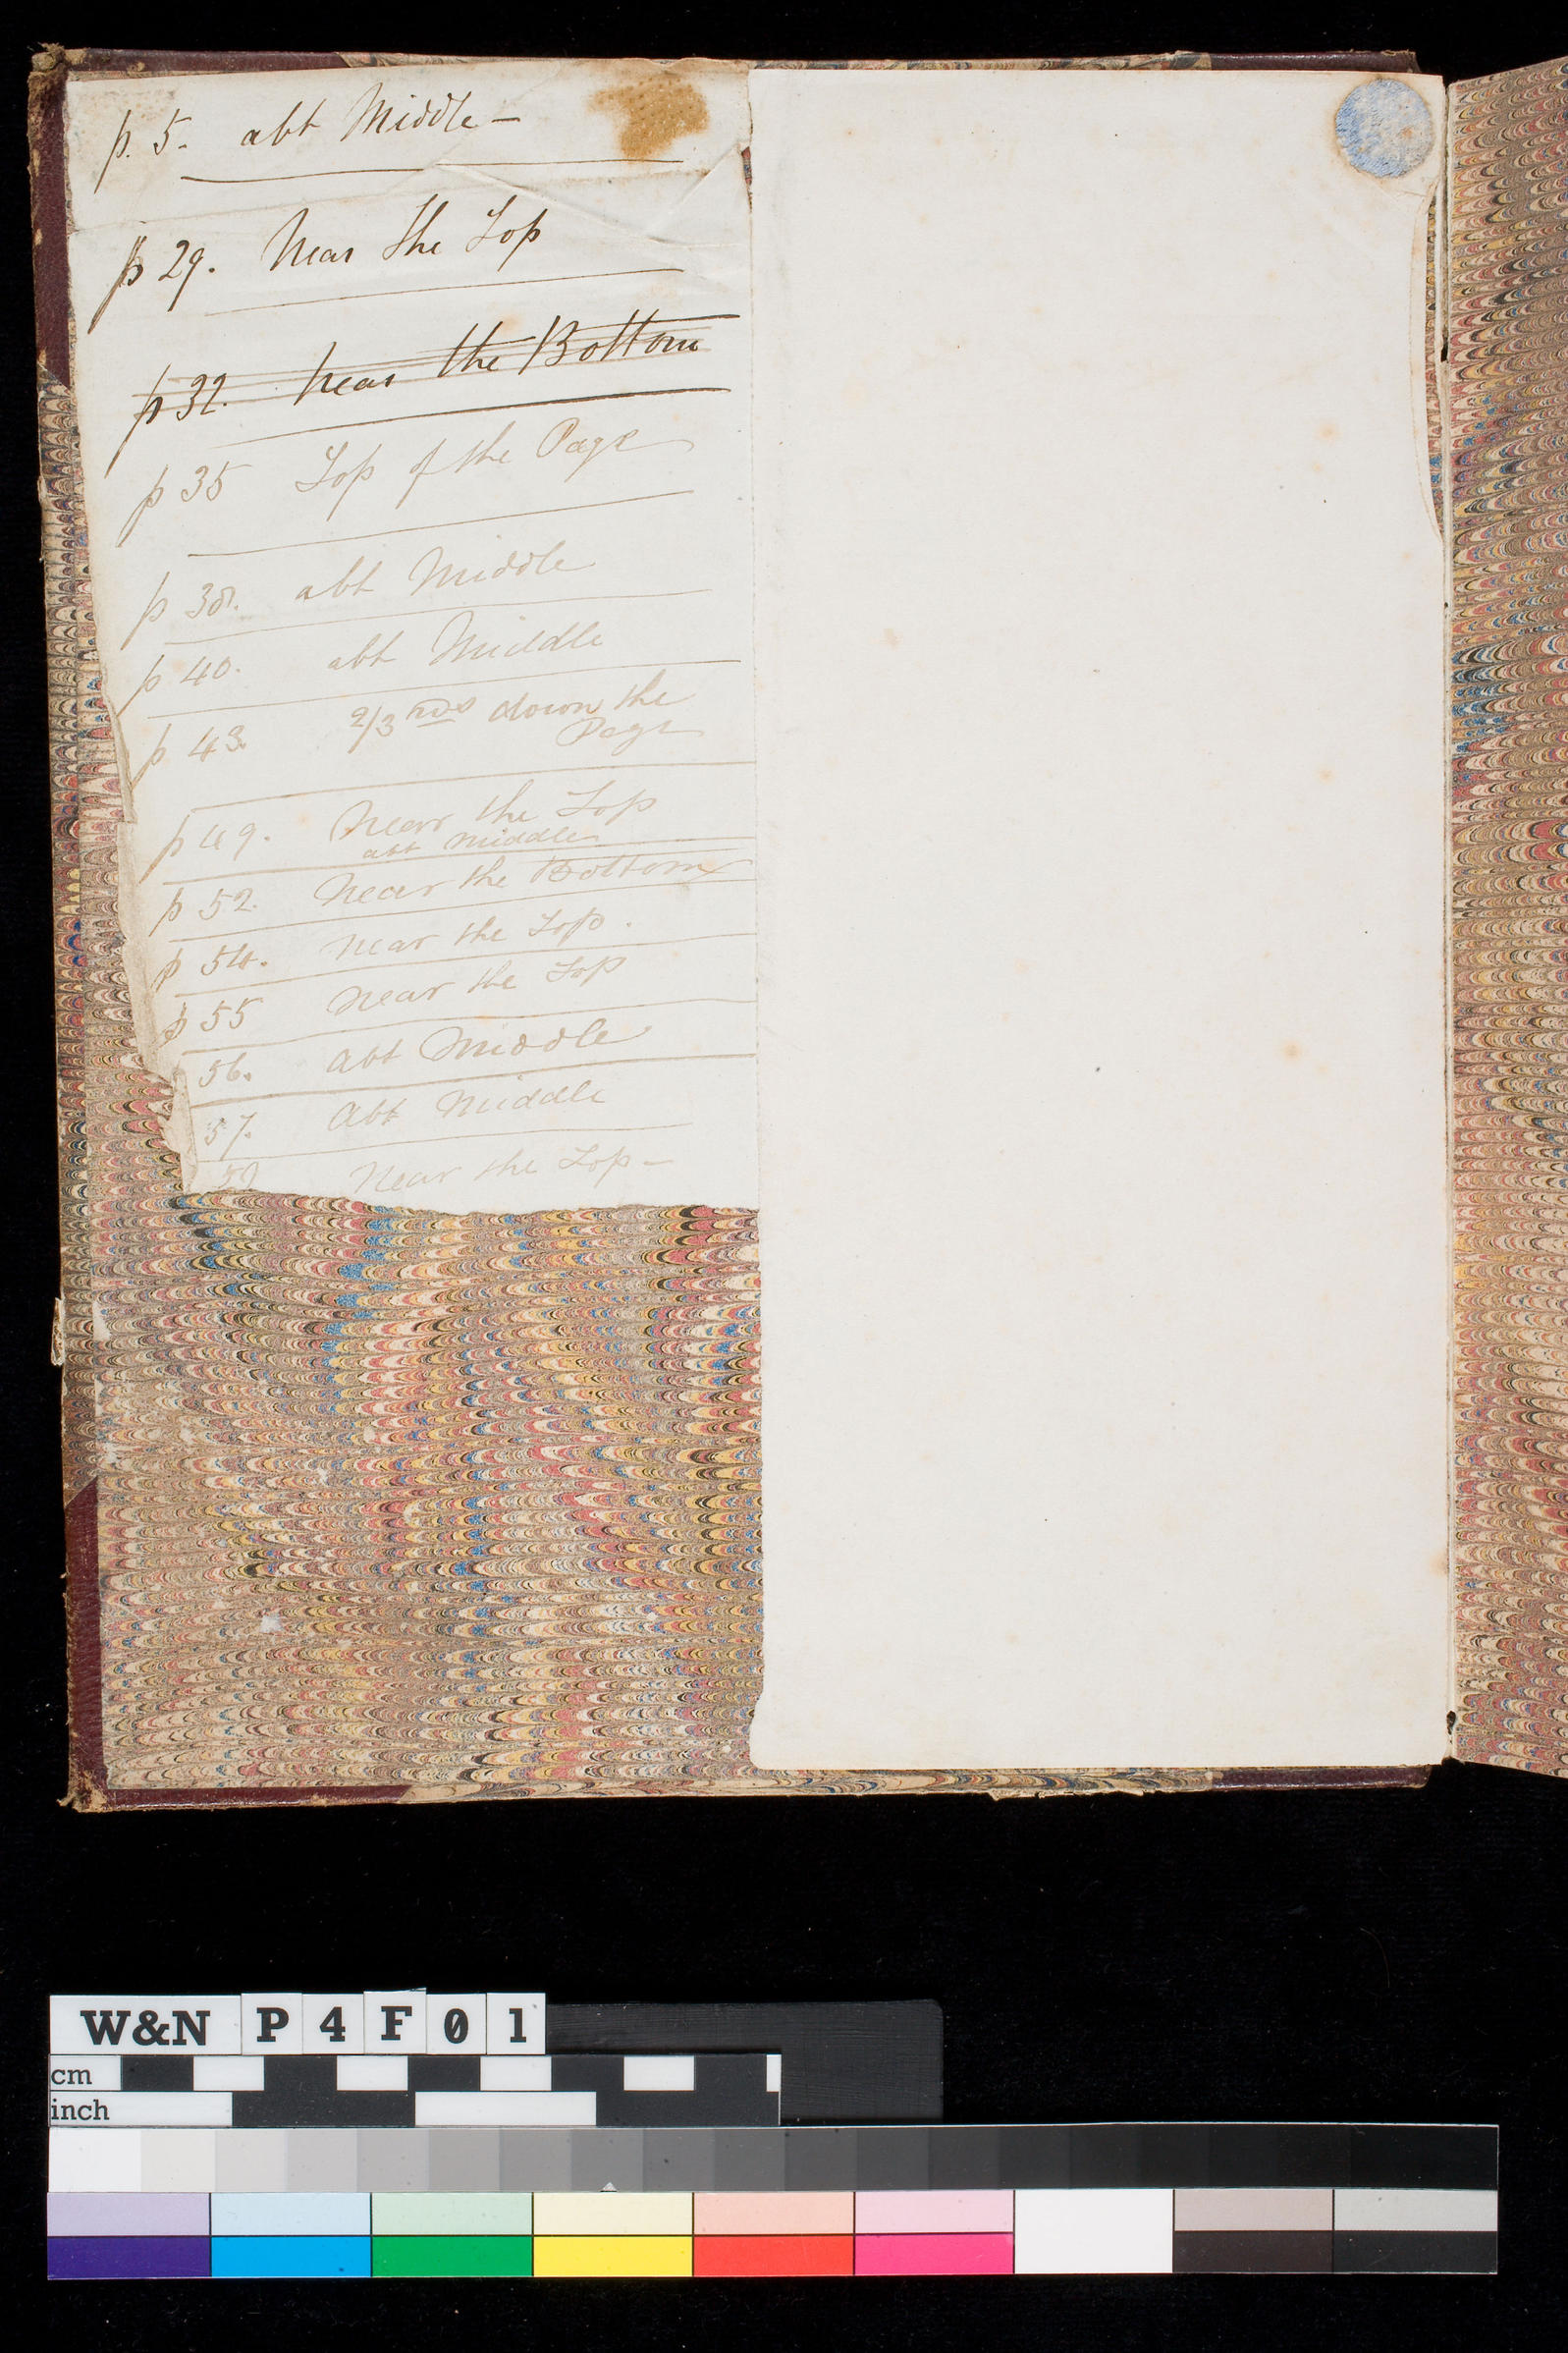 p. 5. abt Middle —
p 29. Near the Top
p 32. near the Bottom
p 35 Top of the Page
p 38. abt Middle
p 40. abt Middle
p 43. 2/3rds down the
Page
p 49. Near the Top
abt Middle
p 52. Near the Bottom
p 54. near the Top.
p 55 near the Top
56. abt Middle
57. Abt Middle
Near the Top —
W&N P4F01
cm
inch